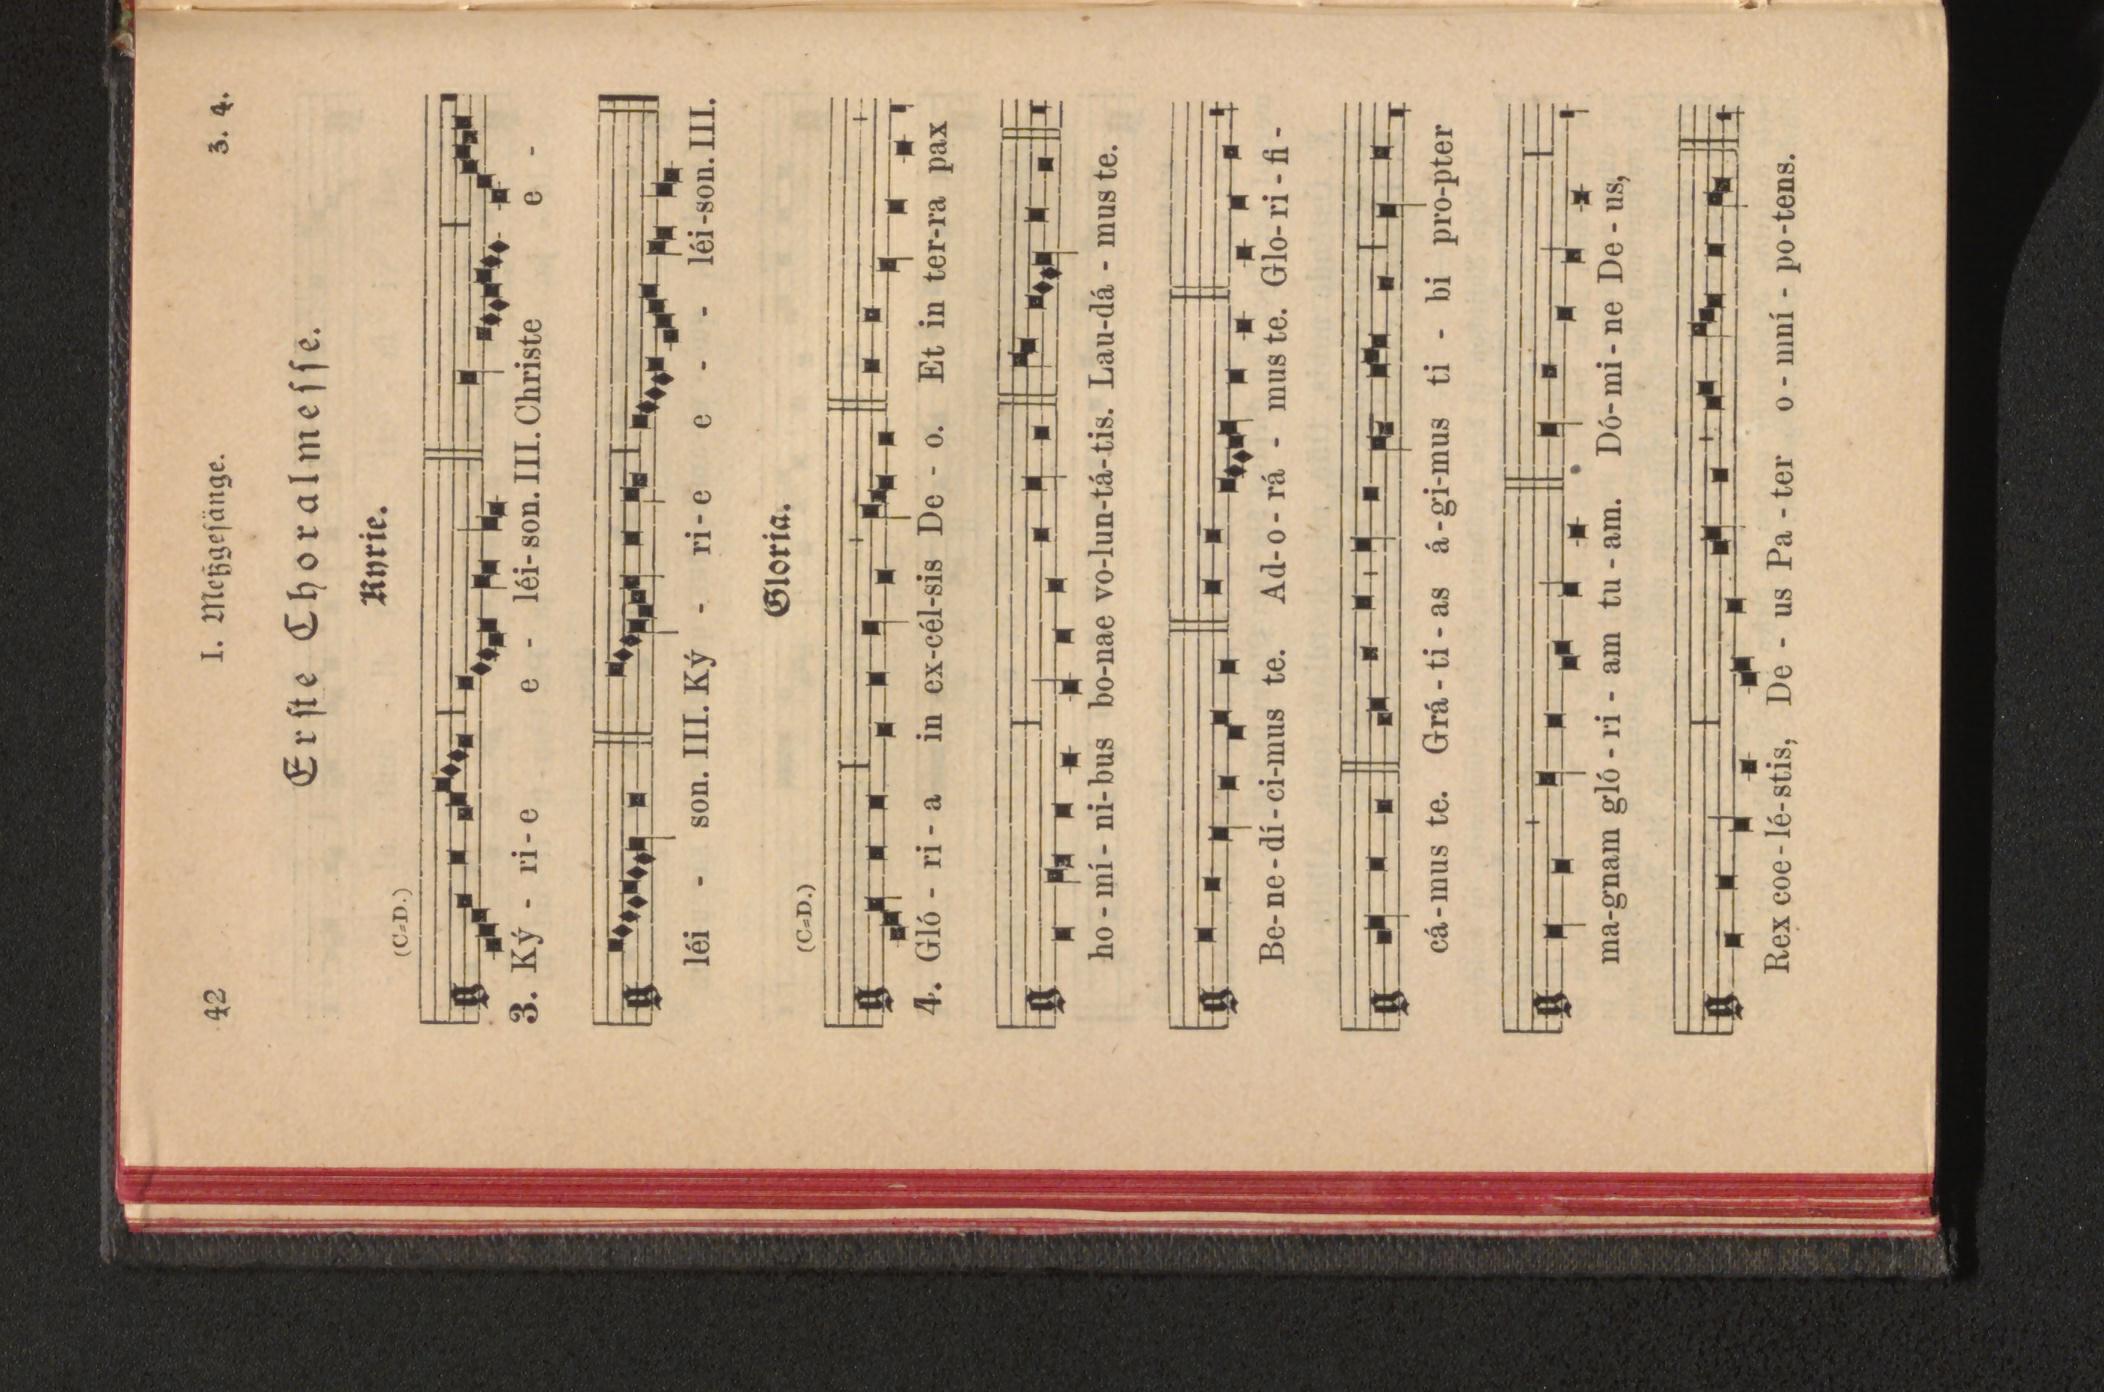 42 I. Meßgesänge. 3. 4.
Erste Choralmesse.
Kyrie.
(C=D.)
3. Ký - ri-e e - léi-son. III. Christe e -
léi - son. III. Ký - ri-e e - - léi-son. III.
Gloria.
(C=D.)
4. Gló - ri - a in ex-cél-sis De - o. Et in ter-ra pax
ho - mí - ni-bus bo-nae vo-lun-tá-tis. Lau-dá - mus te.
Be-ne-dí-ci-mus te. Ad-o-rá - mus te. Glo-ri-fi-
cá-mus te. Grá-ti-as á-gi-mus ti - bi pro-pter
ma-gnam gló-ri-am tu-am. Dó-mi-ne De-us,
Rex coe-lé-stis, De - us Pa-ter o-mní-po-tens.